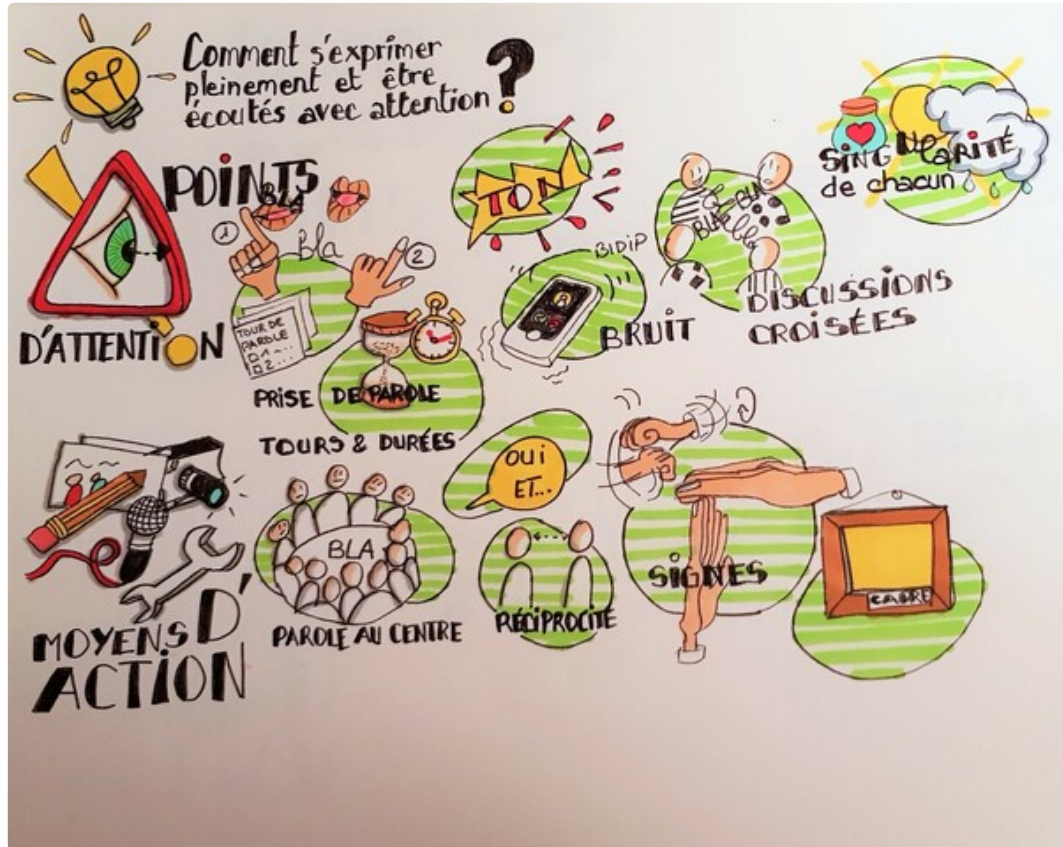 Comment s'exprimer
pleinement et être
écoutés avec attention ?
POINTS
D'ATTENTION
BLA
Bla
1
2
TOUR DE
PAROLE
1...
2...
PRISE DE PAROLE
TOURS & DURÉES
TON
BIDIP
BRUIT
BLA-BLA
DISCUSSIONS
CROISÉES
SINGULARITÉ
de chacun
MOYENS D'
ACTION
BLA
PAROLE AU CENTRE
OUI
ET...
RÉCIPROCITÉ
SIGNES
CADRE